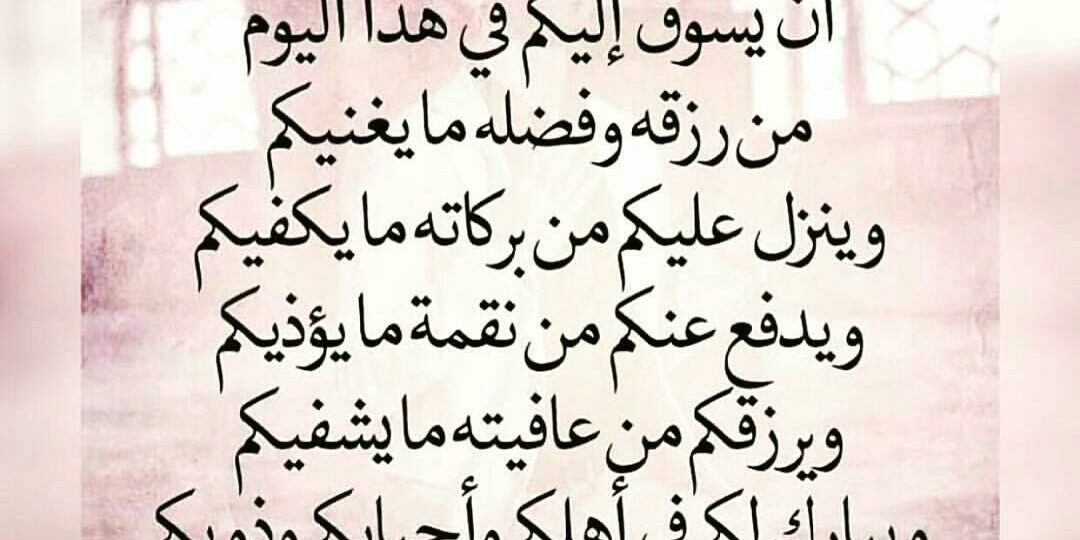 أن يسوق إليكم في هذا اليوم
من رزقه وفضله ما يغنيكم
وينزل عليكم من بركاته ما يكفيكم
ويدفع عنكم من نقمة ما يؤذيكم
ويرزقكم من عافيته ما يشفيكم
ويبارك لكم في أهلكم وأحبابكم وذويكم